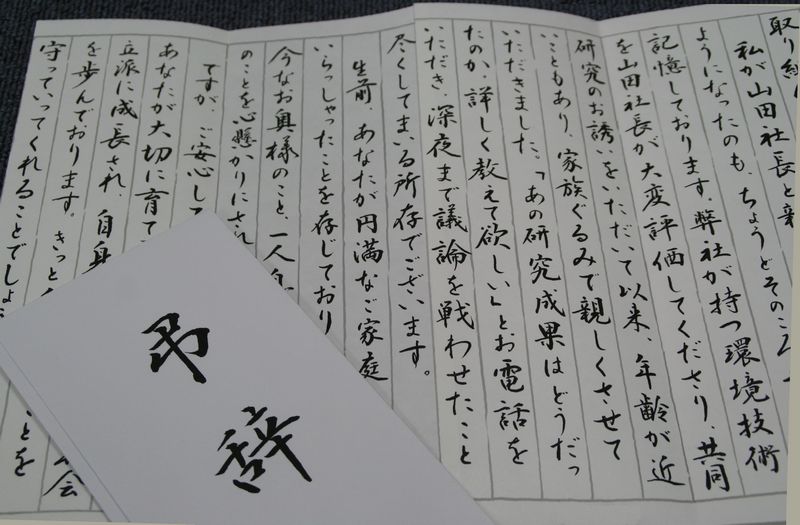 取り組
私が山田社長と親
ようになったのも、ちょうどそのころ
記憶しております。弊社が持つ環境技術
を山田社長が大変評価してくださり、共同
研究のお誘いをいただいて以来、年齢が近
いこともあり、家族ぐるみで親しくさせて
いただきました。「あの研究成果はどうだっ
たのか、詳しく教えて欲しい」とお電話を
いただき、深夜まで議論を戦わせたこと
尽くしてまいる所存でございます。
生前、あなたが円満なご家庭
いらっしゃったことを存じており
今なお奥様のこと、一人息
のことを心懸かりにされ
ですが、ご安心して
あなたが大切に育て
立派に成長され、自身
を歩んでおります。きっと
会
守っていってくれることでしょう
ことを
弔辞